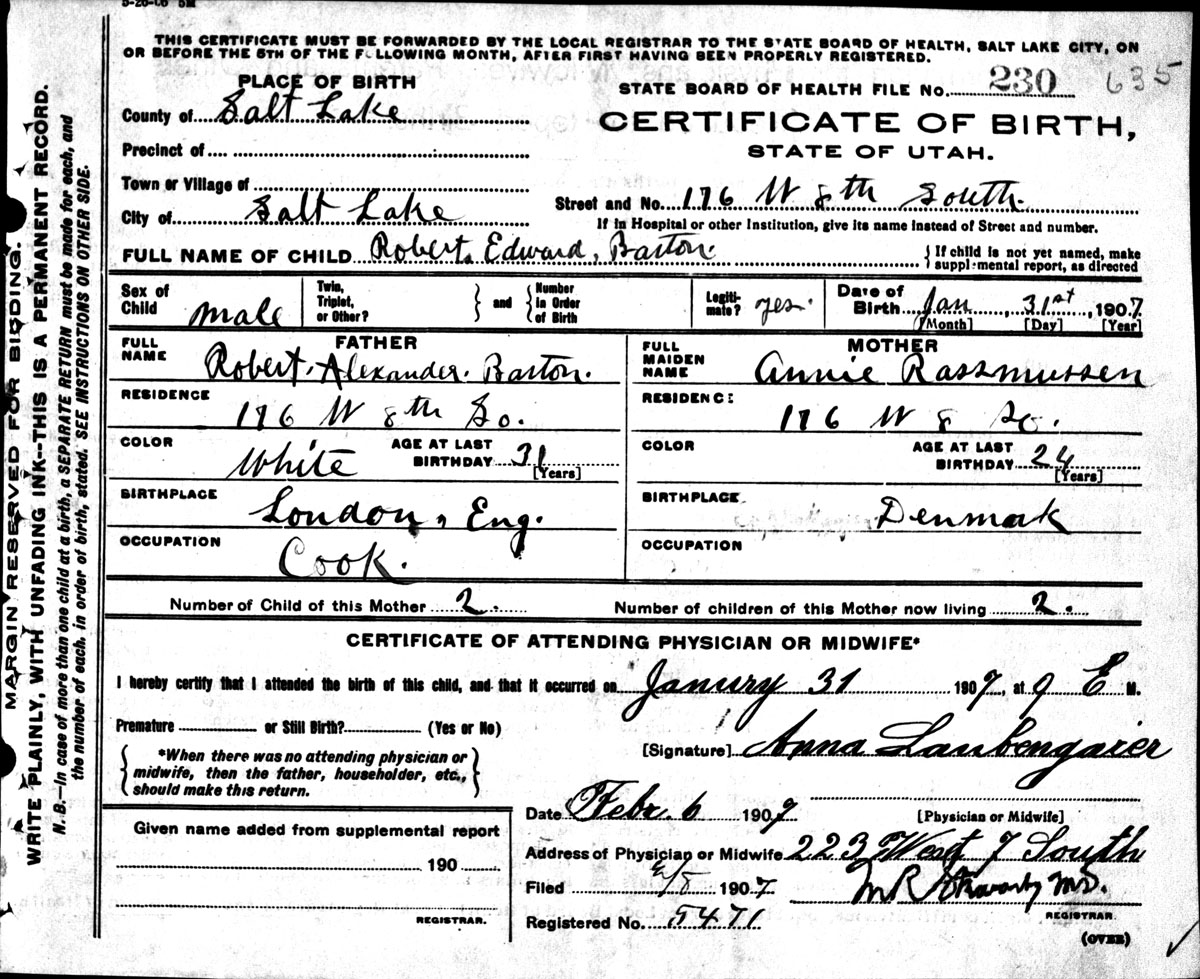 THIS CERTIFICATE MUST BE FORWARDED BY THE LOCAL REGISTRAR TO THE STATE BOARD OF HEALTH, SALT LAKE CITY, ON
OR BEFORE THE 5TH OF THE FOLLOWING MONTH, AFTER FIRST HAVING BEEN PROPERLY REGISTERED.
PLACE OF BIRTH
STATE BOARD OF HEALTH FILE No. 230 635
County of Salt Lake
CERTIFICATE OF BIRTH,
STATE OF UTAH.
Precinct of
Town or Village of
Street and No. 176 W 8th South.
City of Salt Lake
If in Hospital or other Institution, give its name instead of Street and number.
FULL NAME OF CHILD Robert Edward Barton.
{If child is not yet named, make
supplemental report, as directed
Sex of Child male
Twin, Triplet, or Other? } and { Number in Order of Birth
Legitimate? yes.
Date of Birth Jan 31st, 1907
[Month] [Day] [Year]
FATHER
FULL NAME Robert. Alexander. Barton.
RESIDENCE
176 W 8th So.
COLOR White
AGE AT LAST BIRTHDAY 31
[Years]
BIRTHPLACE
London, Eng.
OCCUPATION
Cook.
MOTHER
FULL MAIDEN NAME Annie Rassmussen
RESIDENCE:
176 W 8 So.
COLOR
AGE AT LAST BIRTHDAY 24
[Years]
BIRTHPLACE
Denmark
OCCUPATION
Number of Child of this Mother 2.
Number of children of this Mother now living 2.
CERTIFICATE OF ATTENDING PHYSICIAN OR MIDWIFE*
I hereby certify that I attended the birth of this child, and that it occurred on Janury 31 1907, at 9 E M.
Premature or Still Birth? (Yes or No)
[Signature] Anna Laubengaier
{*When there was no attending physician or
midwife, then the father, householder, etc.,
should make this return.}
Date Febr. 6 1907
[Physician or Midwife]
Given name added from supplemental report
190
REGISTRAR.
Address of Physician or Midwife 223 West 7 South
Filed 2/8 1907
M R M.D.
REGISTRAR.
Registered No. 5471
(OVER)
MARGIN RESERVED FOR BINDING.
WRITE PLAINLY, WITH UNFADING INK--THIS IS A PERMANENT RECORD.
N. B.—In case of more than one child at a birth, a SEPARATE RETURN must be made for each, and
the number of each, in order of birth, stated. SEE INSTRUCTIONS ON OTHER SIDE.